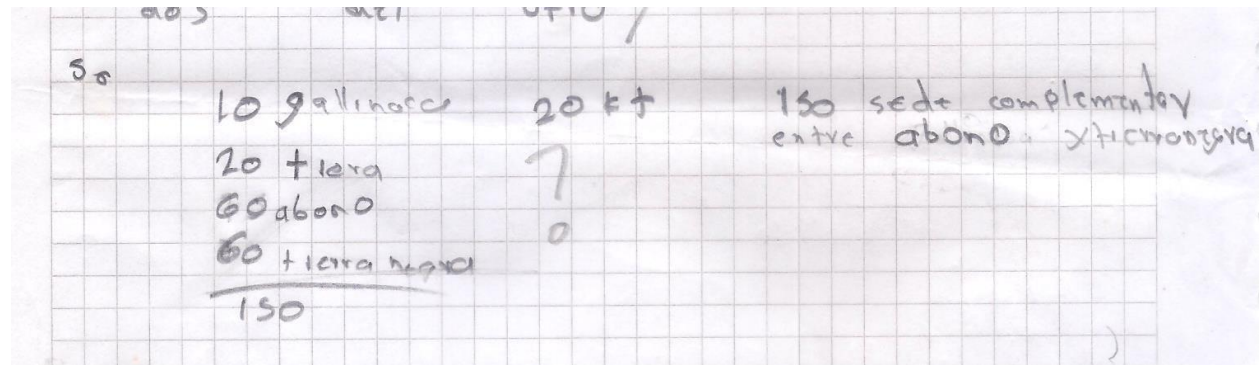 5
10 gallinaca 20 kt 150 sede complementar
entre abono
20 tiera ?
60 abono
60 tierra negra
150